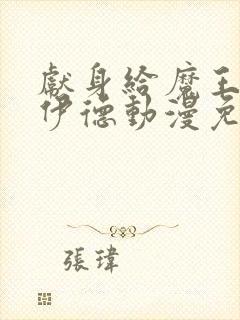 獻身給魔王
伊德動漫免
張瑋